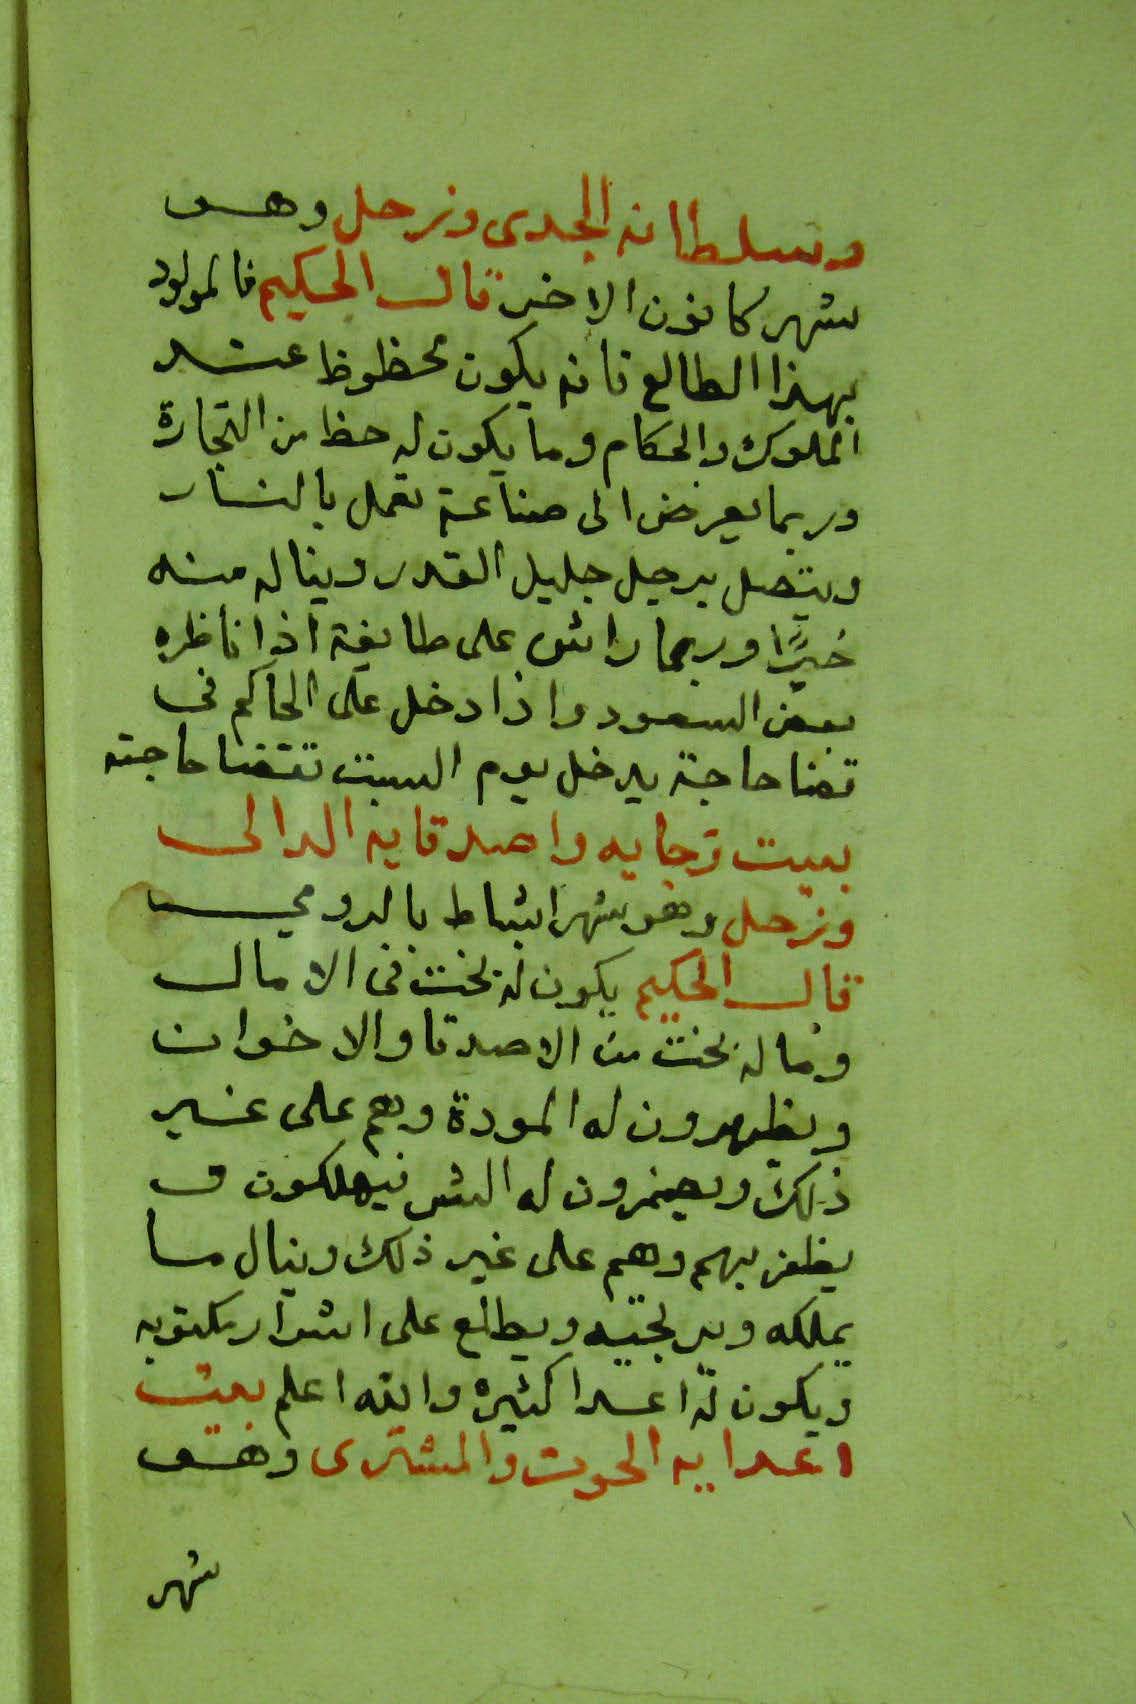 وسلطانه الجدى وزحل وهو
شهر كانون الاخر قال الحكيم فالمولود
بهذا الطالع فانه يكون محظوظا عند
الملوك والحكام وما يكون له حظ من التجارة
وربما يعرض الى صناعة تعمل بالنار
ويتصل برجل جليل القدر ويناله منه
خيرًا وربما راش على طايفة اذا ناظره
بعض السعود واذا دخل على الحاكم فى
قضا حاجة يدخل يوم السبت تقضا حاجته
بيت رجايه واصدقايه الدالى
وزحل وهو شهر اشباط بالرومي
قال الحكيم يكون له بخت فى الامال
وما له بخت من الاصدقا والاخوان
ويظهرون له المودة وهم على غير
ذلك ويضمرون له الشر فيهلكون و
يظفر بهم وهم على غير ذلك وينال ما
يملكه ويرتجيه ويطلع على اسرار مكتوبه
ويكون له اعدا كثيره والله اعلم بيت
اعدايه الحوت والمشترى وهو
شهر